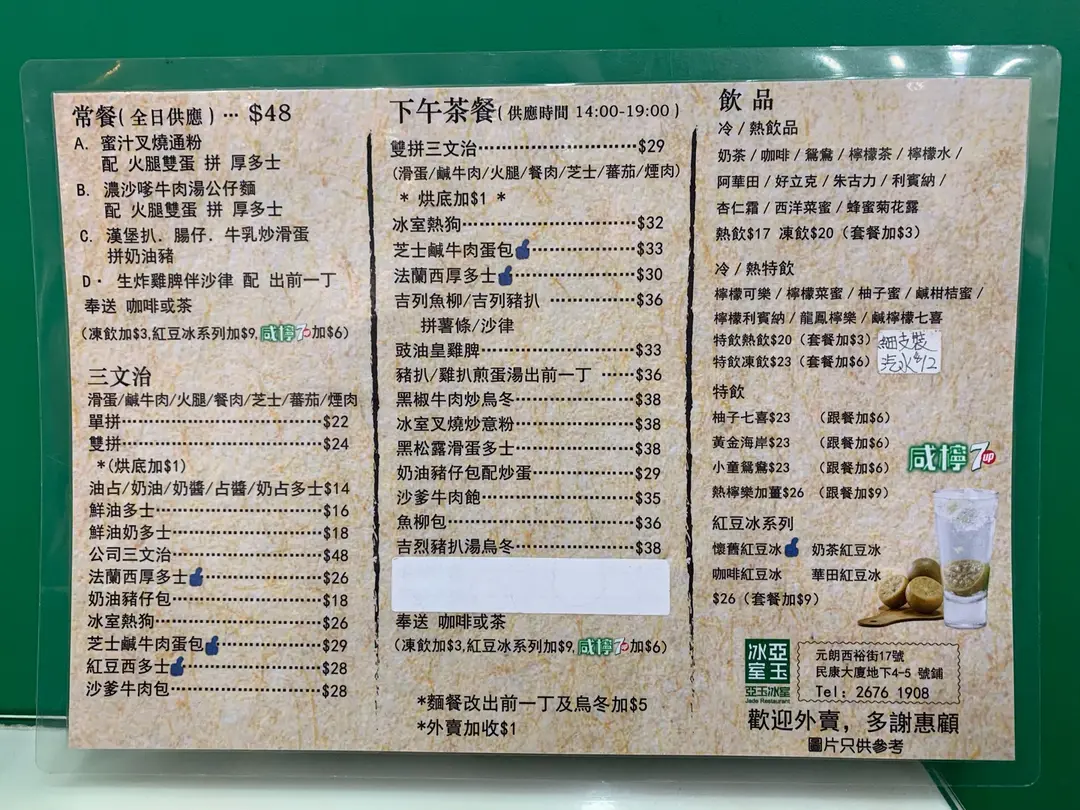 常餐(全日供應) … $48
A. 蜜汁叉燒通粉
配 火腿雙蛋 拼 厚多士
B. 濃沙嗲牛肉湯公仔麵
配 火腿雙蛋 拼 厚多士
C. 漢堡扒．腸仔．牛乳炒滑蛋
拼奶油豬
D· 生炸雞脾伴沙律 配 出前一丁
奉送 咖啡或茶
(凍飲加$3,紅豆冰系列加$9,咸檸7加$6)
三文治
滑蛋/鹹牛肉/火腿/餐肉/芝士/蕃茄/煙肉
單拼……$22
雙拼……$24
*(烘底加$1)
油占/奶油/奶醬/占醬/奶占多士$14
鮮油多士……$16
鮮油奶多士……$18
公司三文治……$48
法蘭西厚多士……$26
奶油豬仔包……$18
冰室熱狗……$26
芝士鹹牛肉蛋包……$29
紅豆西多士……$28
沙爹牛肉包……$28
下午茶餐(供應時間 14:00-19:00)
雙拼三文治……$29
(滑蛋/鹹牛肉/火腿/餐肉/芝士/蕃茄/煙肉)
* 烘底加$1 *
冰室熱狗……$32
芝士鹹牛肉蛋包……$33
法蘭西厚多士……$30
吉列魚柳/吉列豬扒 ……$36
拼薯條/沙律
豉油皇雞脾……$33
豬扒/雞扒煎蛋湯出前一丁 ……$36
黑椒牛肉炒烏冬……$38
冰室叉燒炒意粉……$38
黑松露滑蛋多士……$38
奶油豬仔包配炒蛋……$29
沙爹牛肉飽……$35
魚柳包……$36
吉烈豬扒湯烏冬……$38
奉送 咖啡或茶
(凍飲加$3,紅豆冰系列加$9,咸檸7加$6)
*麵餐改出前一丁及烏冬加$5
*外賣加收$1
飲品
冷/熱飲品
奶茶/咖啡/鴛鴦/檸檬茶/檸檬水/
阿華田/好立克/朱古力/利賓納/
杏仁霜/西洋菜蜜/蜂蜜菊花露
熱飲$17 凍飲$20（套餐加$3）
冷/熱特飲
檸檬可樂/檸檬菜蜜/柚子蜜/鹹柑桔蜜/
檸檬利賓納/龍鳳檸樂/鹹檸檬七喜
特飲熱飲$20（套餐加$3）
特飲凍飲$23（套餐加$6）
細支裝
汽水$12
特飲
柚子七喜$23 （跟餐加$6）
黃金海岸$23 （跟餐加$6）
小童鴛鴦$23 （跟餐加$6）
熱檸樂加薑$26 （跟餐加$9）
咸檸7up
紅豆冰系列
懷舊紅豆冰 奶茶紅豆冰
咖啡紅豆冰 華田紅豆冰
$26（套餐加$9）
亞玉冰室
亞玉冰室
Jade Restaurant
元朗西裕街17號
民康大廈地下4-5 號鋪
Tel: 2676 1908
歡迎外賣，多謝惠顧
圖片只供參考